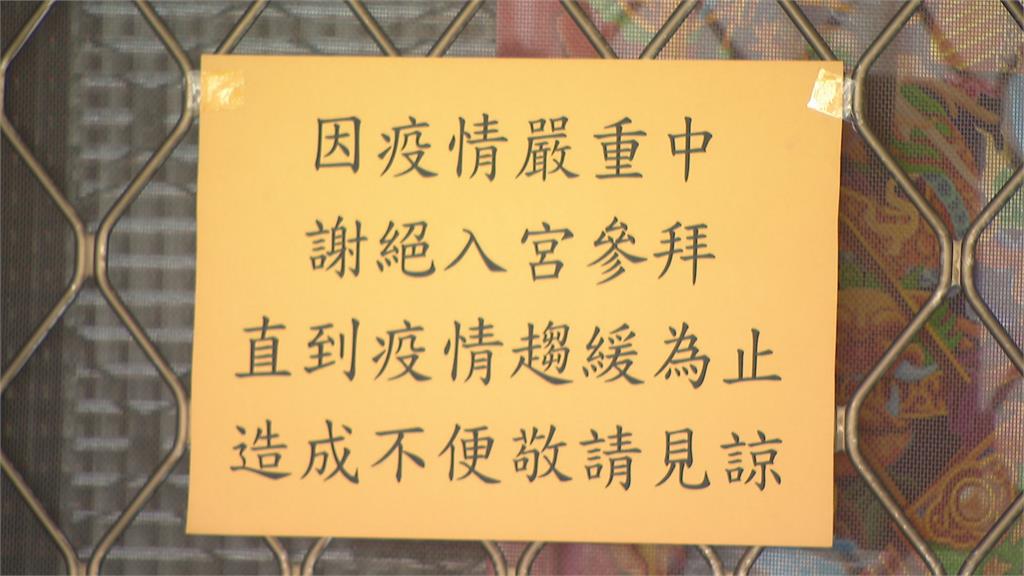 因疫情嚴重中
謝絕入宮參拜
直到疫情趨緩為止
造成不便敬請見諒